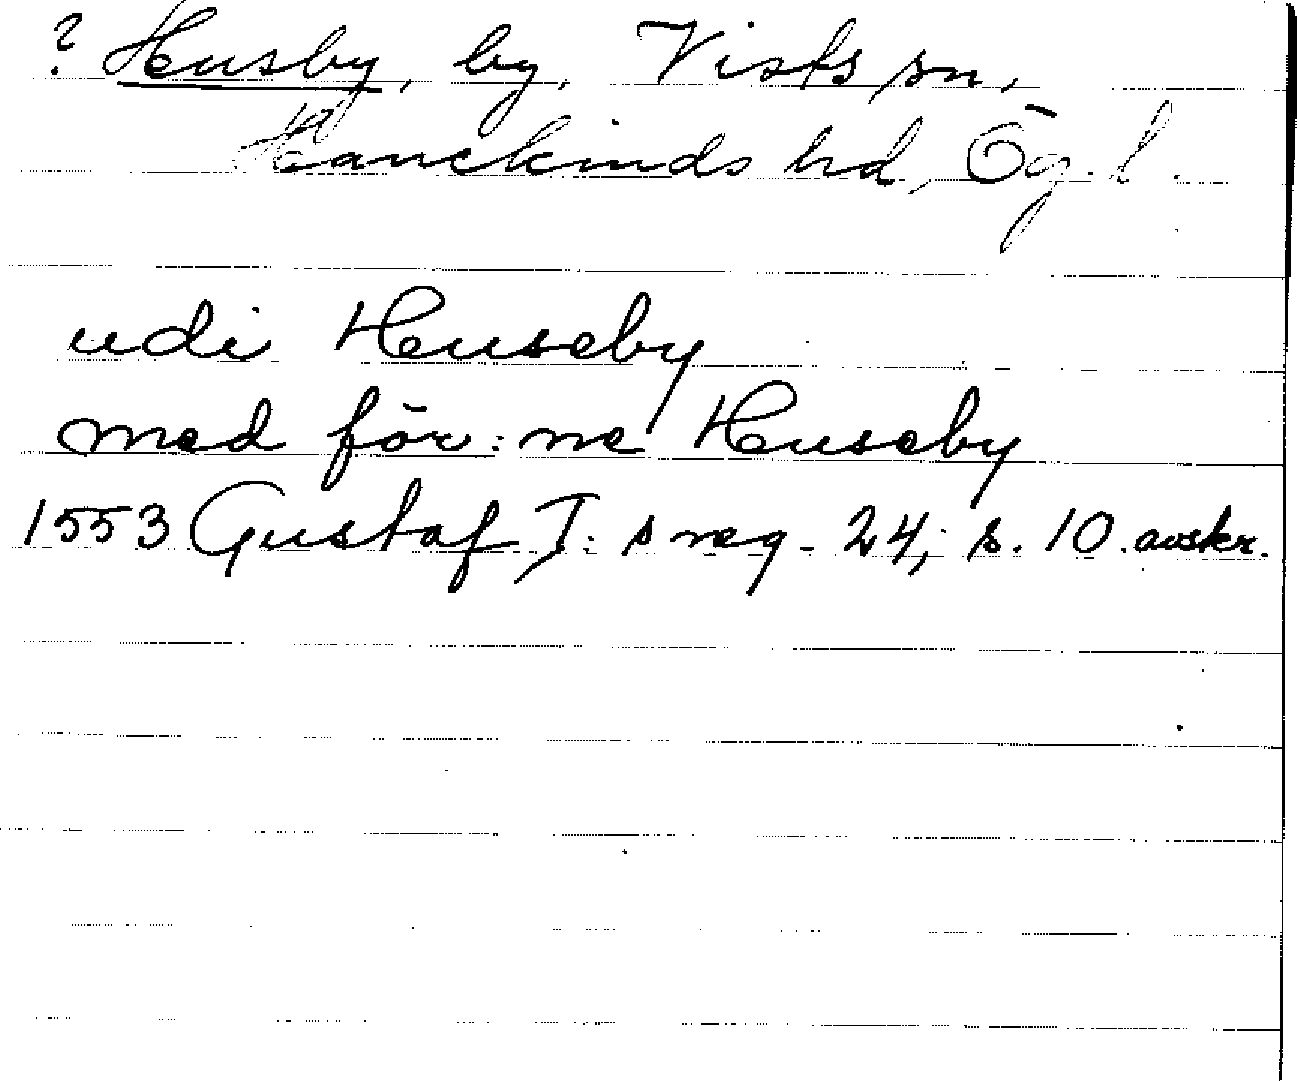 ? Husby, by, Vists sn,
Hanekinds hd, Ög. l.
udi Huseby
med för:ne Huseby
1553 Gustaf I:s reg. 24, s. 10. avskr.